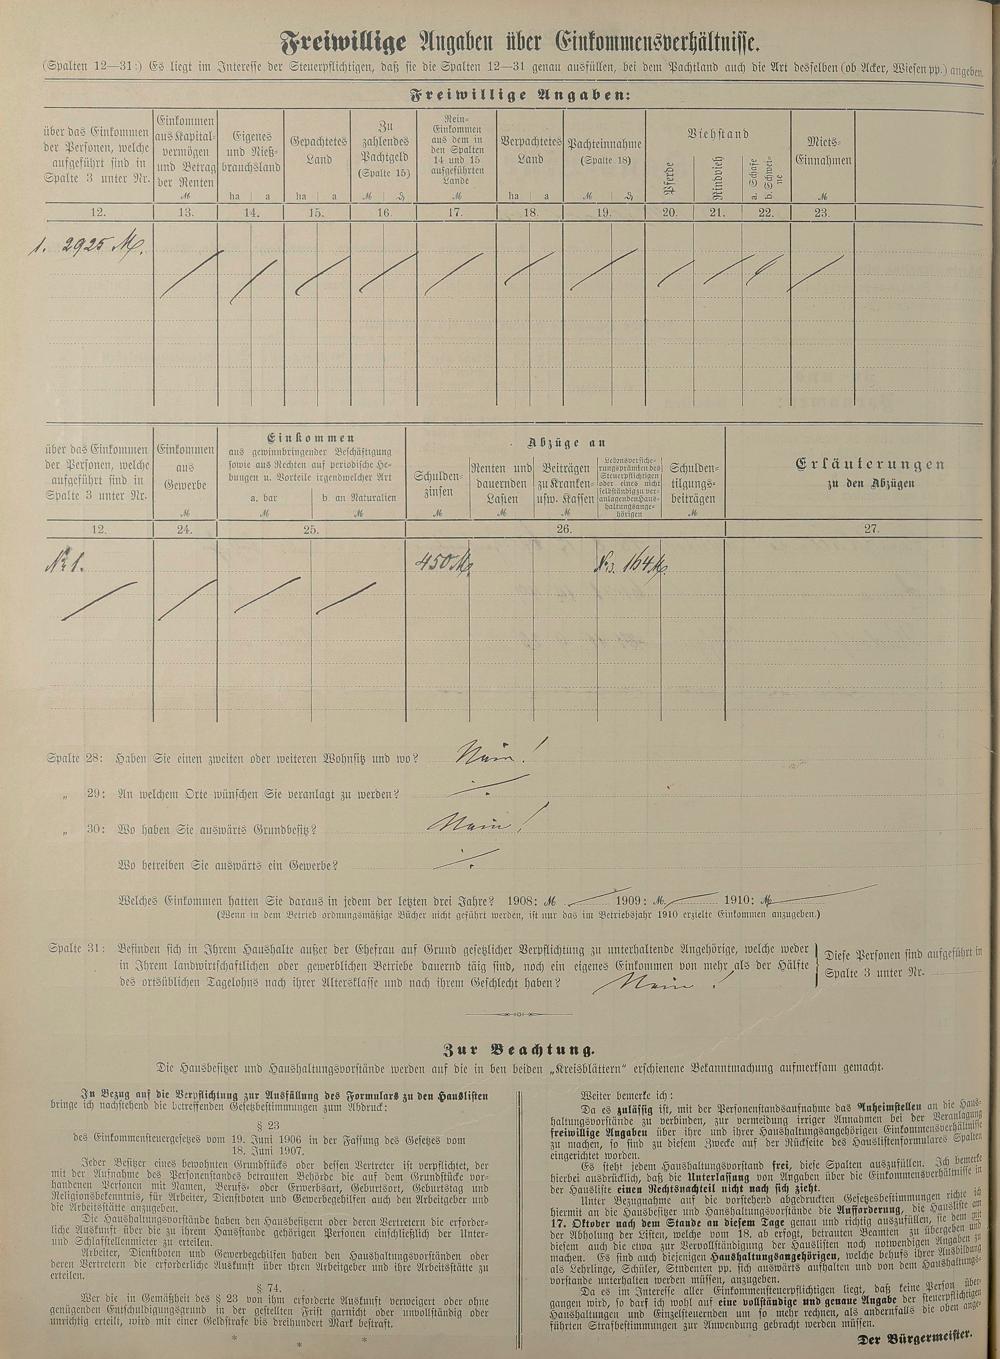 Freiwillige Angaben über Einkommensverhältnisse.
(Spalten 12—31:) Es liegt im Interesse der Steuerpflichtigen, daß sie die Spalten 12—31 genau ausfüllen, bei dem Pachtland auch die Art desselben (ob Acker, Wiesen pp.) angeben.
Freiwillige Angaben:
über das Einkommen der Personen, welche aufgeführt sind in Spalte 3 unter Nr.
Einkommen aus Kapital-vermögen und Betrag der Renten
M
Eigenes und Nieß-brauchsland
ha a
Gepachtetes Land
ha a
Zu zahlendes Pachtgeld (Spalte 15)
M ₰
Rein-Einkommen aus dem in den Spalten 14 und 15 aufgeführten Lande
M
Verpachtetes Land
ha a
Pachteinnahme (Spalte 18)
M ₰
Viehstand
Pferde
Rindvieh
a. Schafe b. Schwei-ne
Miets-Einnahmen
M
12. 13. 14. 15. 16. 17. 18. 19. 20. 21. 22. 23.
1. 2925 M.
über das Einkommen der Personen, welche aufgeführt sind in Spalte 3 unter Nr.
Einkommen aus Gewerbe
M
Einkommen
aus gewinnbringender Beschäftigung
sowie aus Rechten auf periodische He-
bungen u. Vorteile irgendwelcher Art
a. bar b. an Naturalien
M M
Abzüge an
Schulden-zinsen
M
Renten und dauernden Lasten
M
Beiträgen zu Kranken- usw. Kassen
M
Lebensversiche-rungsprämien des Steuerpflichtigen oder eines nicht selbständig zu ver-anlagenden Haus-haltungsange-hörigen
Schulden-tilgungs-beiträgen
M
Erläuterungen
zu den Abzügen
12. 24. 25. 26. 27.
№ 1. 450 M. 164 M.
Spalte 28: Haben Sie einen zweiten oder weiteren Wohnsitz und wo? Nein!
„ 29: An welchem Orte wünschen Sie veranlagt zu werden?
„ 30: Wo haben Sie auswärts Grundbesitz? Nein!
Wo betreiben Sie auswärts ein Gewerbe?
Welches Einkommen hatten Sie daraus in jedem der letzten drei Jahre? 1908: M 1909: M. 1910: M
(Wenn in dem Betrieb ordnungsmäßige Bücher nicht geführt werden, ist nur das im Betriebsjahr 1910 erzielte Einkommen anzugeben.)
Spalte 31: Befinden sich in Ihrem Haushalte außer der Ehefrau auf Grund gesetzlicher Verpflichtung zu unterhaltende Angehörige, welche weder
in Ihrem landwirtschaftlichen oder gewerblichen Betriebe dauernd tätig sind, noch ein eigenes Einkommen von mehr als der Hälfte
des ortsüblichen Tagelohns nach ihrer Altersklasse und nach ihrem Geschlecht haben? Nein!
Diese Personen sind aufgeführt in
Spalte 3 unter Nr.
Zur Beachtung.
Die Hausbesitzer und Haushaltungsvorstände werden auf die in den beiden „Kreisblättern“ erschienene Bekanntmachung aufmerksam gemacht.
In Bezug auf die Verpflichtung zur Ausfüllung des Formulars zu den Hauslisten
bringe ich nachstehend die betreffenden Gesetzbestimmungen zum Abdruck:
§ 23
des Einkommensteuergesetzes vom 19. Juni 1906 in der Fassung des Gesetzes vom
18. Juni 1907.
Jeder Besitzer eines bewohnten Grundstücks oder dessen Vertreter ist verpflichtet, der
mit der Aufnahme des Personenstandes betrauten Behörde die auf dem Grundstücke vor-
handenen Personen mit Namen, Berufs- oder Erwerbsart, Geburtsort, Geburtstag und
Religionsbekenntnis, für Arbeiter, Dienstboten und Gewerbegehilfen auch den Arbeitgeber und
die Arbeitstätte anzugeben.
Die Haushaltungsvorstände haben den Hausbesitzern oder deren Vertretern die erforder-
liche Auskunft über die zu ihrem Hausstande gehörigen Personen einschließlich der Unter-
und Schlafstellenmieter zu erteilen.
Arbeiter, Dienstboten und Gewerbegehilfen haben den Haushaltungsvorständen oder
deren Vertretern die erforderliche Auskunft über ihren Arbeitgeber und ihre Arbeitstätte zu
erteilen.
§ 74.
Wer die in Gemäßheit des § 23 von ihm erforderte Auskunft verweigert oder ohne
genügenden Entschuldigungsgrund in der gestellten Frist garnicht oder unvollständig oder
unrichtig erteilt, wird mit einer Geldstrafe bis dreihundert Mark bestraft.
* * *
Weiter bemerke ich:
Da es zulässig ist, mit der Personenstandsaufnahme das Anheimstellen an die Haus-
haltungsvorstände zu verbinden, zur vermeidung irriger Annahmen bei der Veranlagung
freiwillige Angaben über ihre und ihrer Haushaltungsangehörigen Einkommensverhältnisse
zu machen, so sind zu diesem Zwecke auf der Rückseite des Hauslistenformulares Spalten
eingerichtet worden.
Es steht jedem Haushaltungsvorstand frei, diese Spalten auszufüllen. Ich bemerke
hierbei ausdrücklich, daß die Unterlassung von Angaben über die Einkommensverhältnisse in
der Hausliste einen Rechtsnachteil nicht nach sich zieht.
Unter Bezugnahme auf die vorstehend abgedruckten Gesetzesbestimmungen richte ich
hiermit an die Hausbesitzer und Haushaltungsvorstände die Aufforderung, die Hausliste am
17. Oktober nach dem Stande an diesem Tage genau und richtig auszufüllen, sie dem mit
der Abholung der Listen, welche vom 18. ab erfogt, betrauten Beamten zu übergeben und
diesem auch die etwa zur Vervollständigung der Hauslisten noch notwendigen Angaben zu
machen. Es sind auch diejenigen Haushaltungsangehörigen, welche behufs ihrer Ausbildung
als Lehrlinge, Schüler, Studenten pp. sich auswärts aufhalten und von dem Haushaltungs-
vorstande unterhalten werden müssen, anzugeben.
Da es im Interesse aller Einkommensteuerpflichtigen liegt, daß keine Person über-
gangen wird, so darf ich wohl auf eine vollständige und genaue Angabe der steuerpflichtigen
Haushaltungen und Einzelsteuernden um so mehr rechnen, als andernfalls die oben ange-
führten Strafbestimmungen zur Anwendung gebracht werden müssen.
Der Bürgermeister.